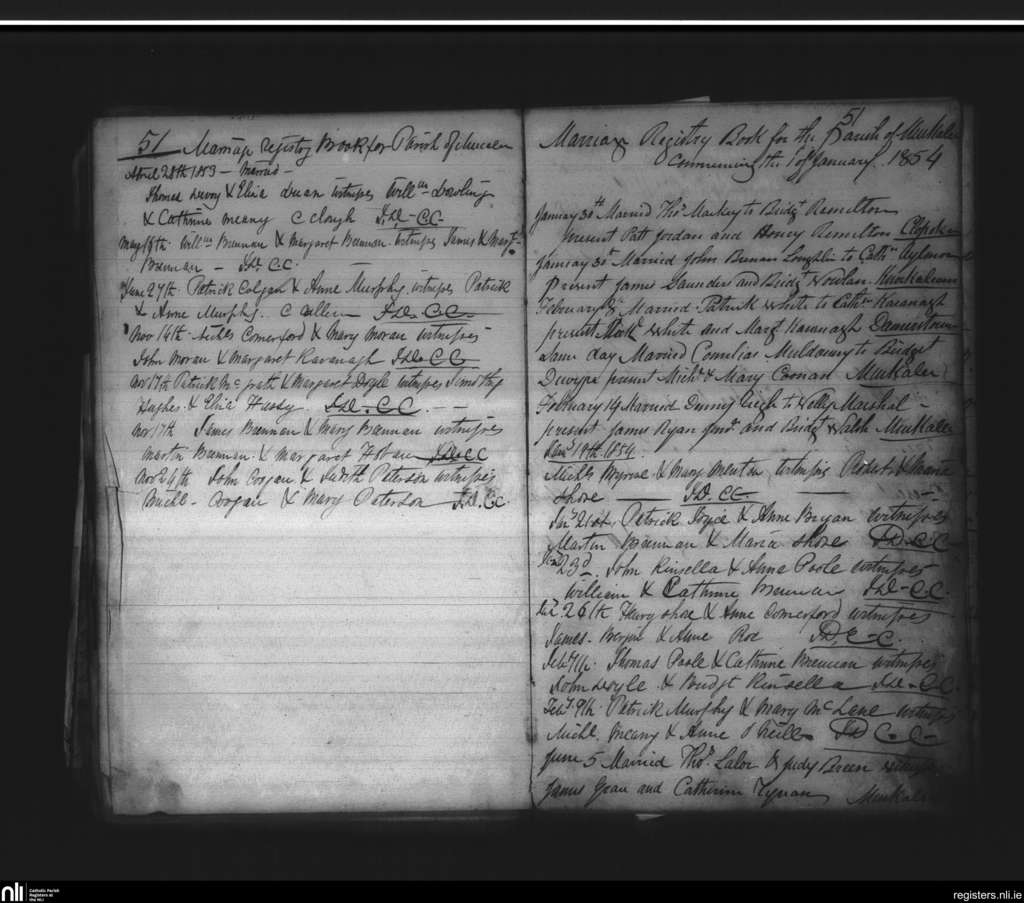 51 Marriage Registry Book for Parish of
April 28th 1853 — Married —
Thomas & Eliza witnesses Willm Dowling
& Catherine Meany Clough JD. CC
May 18th. Willm Brennan & Margaret Brennan. witnesses James & Margt
Brennan — JD. C.C.
June 27th. Patrick Colgan & Anne Murphy witnesses Patrick
& Anne Murphy. JD. C.C.
Nov 14th Comerford & Mary Moran witnesses
John Moran & Margaret Kavanagh JD. CC
Nov 17th Patrick McGrath & Margaret Doyle witnesses Timothy
Hughes & Eliza JD. CC.
Nov 17th James Brennan & Mary Brennan witnesses
Martin Brennan & Margaret JD. CC
Nov 24th John Coogan & Judith Peterson witnesses
Michl. Coogan & Mary Peterson JD. CC.
51
Marriage Registry Book for the Parish of Muckalee
Commencing the 1 of January. 1854
January 30th Married Thos Mackey to Bridgt Hamilton
present Patt Jordan and Honey Hamilton
January 31st Married John Loughlin to Cathn Aylward
Present James Saunders and Bridgt
February Married Patrick White to Cathn Kavanagh
present White and Margt Kavanagh
Same day Married Cornelius Muldowny to Bridget
present Michl & Mary Coonan Muckalee
February 14 Married to Marshal —
present James Ryan and Bridgt Walsh Muckalee
Jany 19th. 1854.
Michl & Mary witnesses Robert & Maria
Shore — JD. CC —
Jany 21st. Patrick Joyce & Anne Bryan witnesses
Martin Brennan & Maria Shore JD. C.C.
Jany 23d. John Kinsella & Anne Poole witnesses
William & Catherine Brennan JD. C.C.
26th Henry Shore & Anne Comerford witnesses
James Bergin & Anne Roe JD. C.C.
Feby 7th. Thomas Poole & Catherine Brennan witnesses
John Doyle & Bridgt Kinsella JD. CC.
Feby 9th. Patrick Murphy & Mary witnesses
Michl. Meany & Anne O Neill JD C.C.
June 5 Married Thos. Lalor & Judy Breen witnesses
James and Catherine Tynan Muckalee
nli
Catholic Parish
Registers at
the NLI
registers.nli.ie